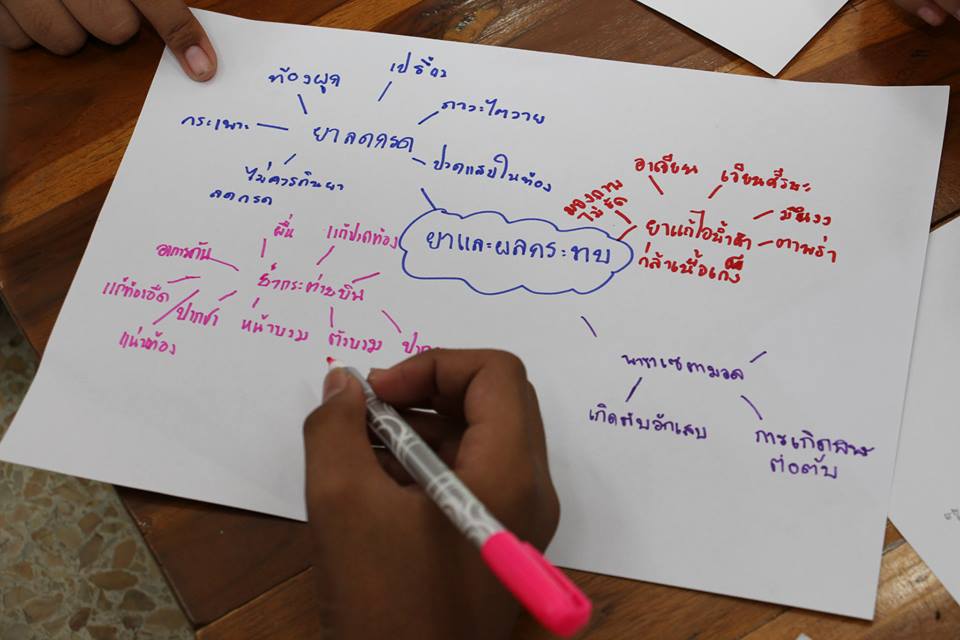 ท้องผูก
เปรี้ยว
กระเพาะ
ยาลดกรด
ภาวะไตวาย
ปวดแสบในท้อง
ไม่ควรกินยา
ลดกรด
ยาและผลกระทบ
อาเจียน
เวียนศีรษะ
มองภาพ
ไม่ชัด
ยาแก้ไอน้ำดำ
มึนงง
ตาพร่า
กล้าเนื้อเกร็ง
ผื่น
แก้ปวดท้อง
อาการคัน
ยากระต่ายบิน
แก้ท้องอืด
ปากชา
หน้าบวม
ตัวบวม
แน่นท้อง
พาราเซตามอล
เกิดตับอักเสบ
การเกิดพิษ
ต่อตับ